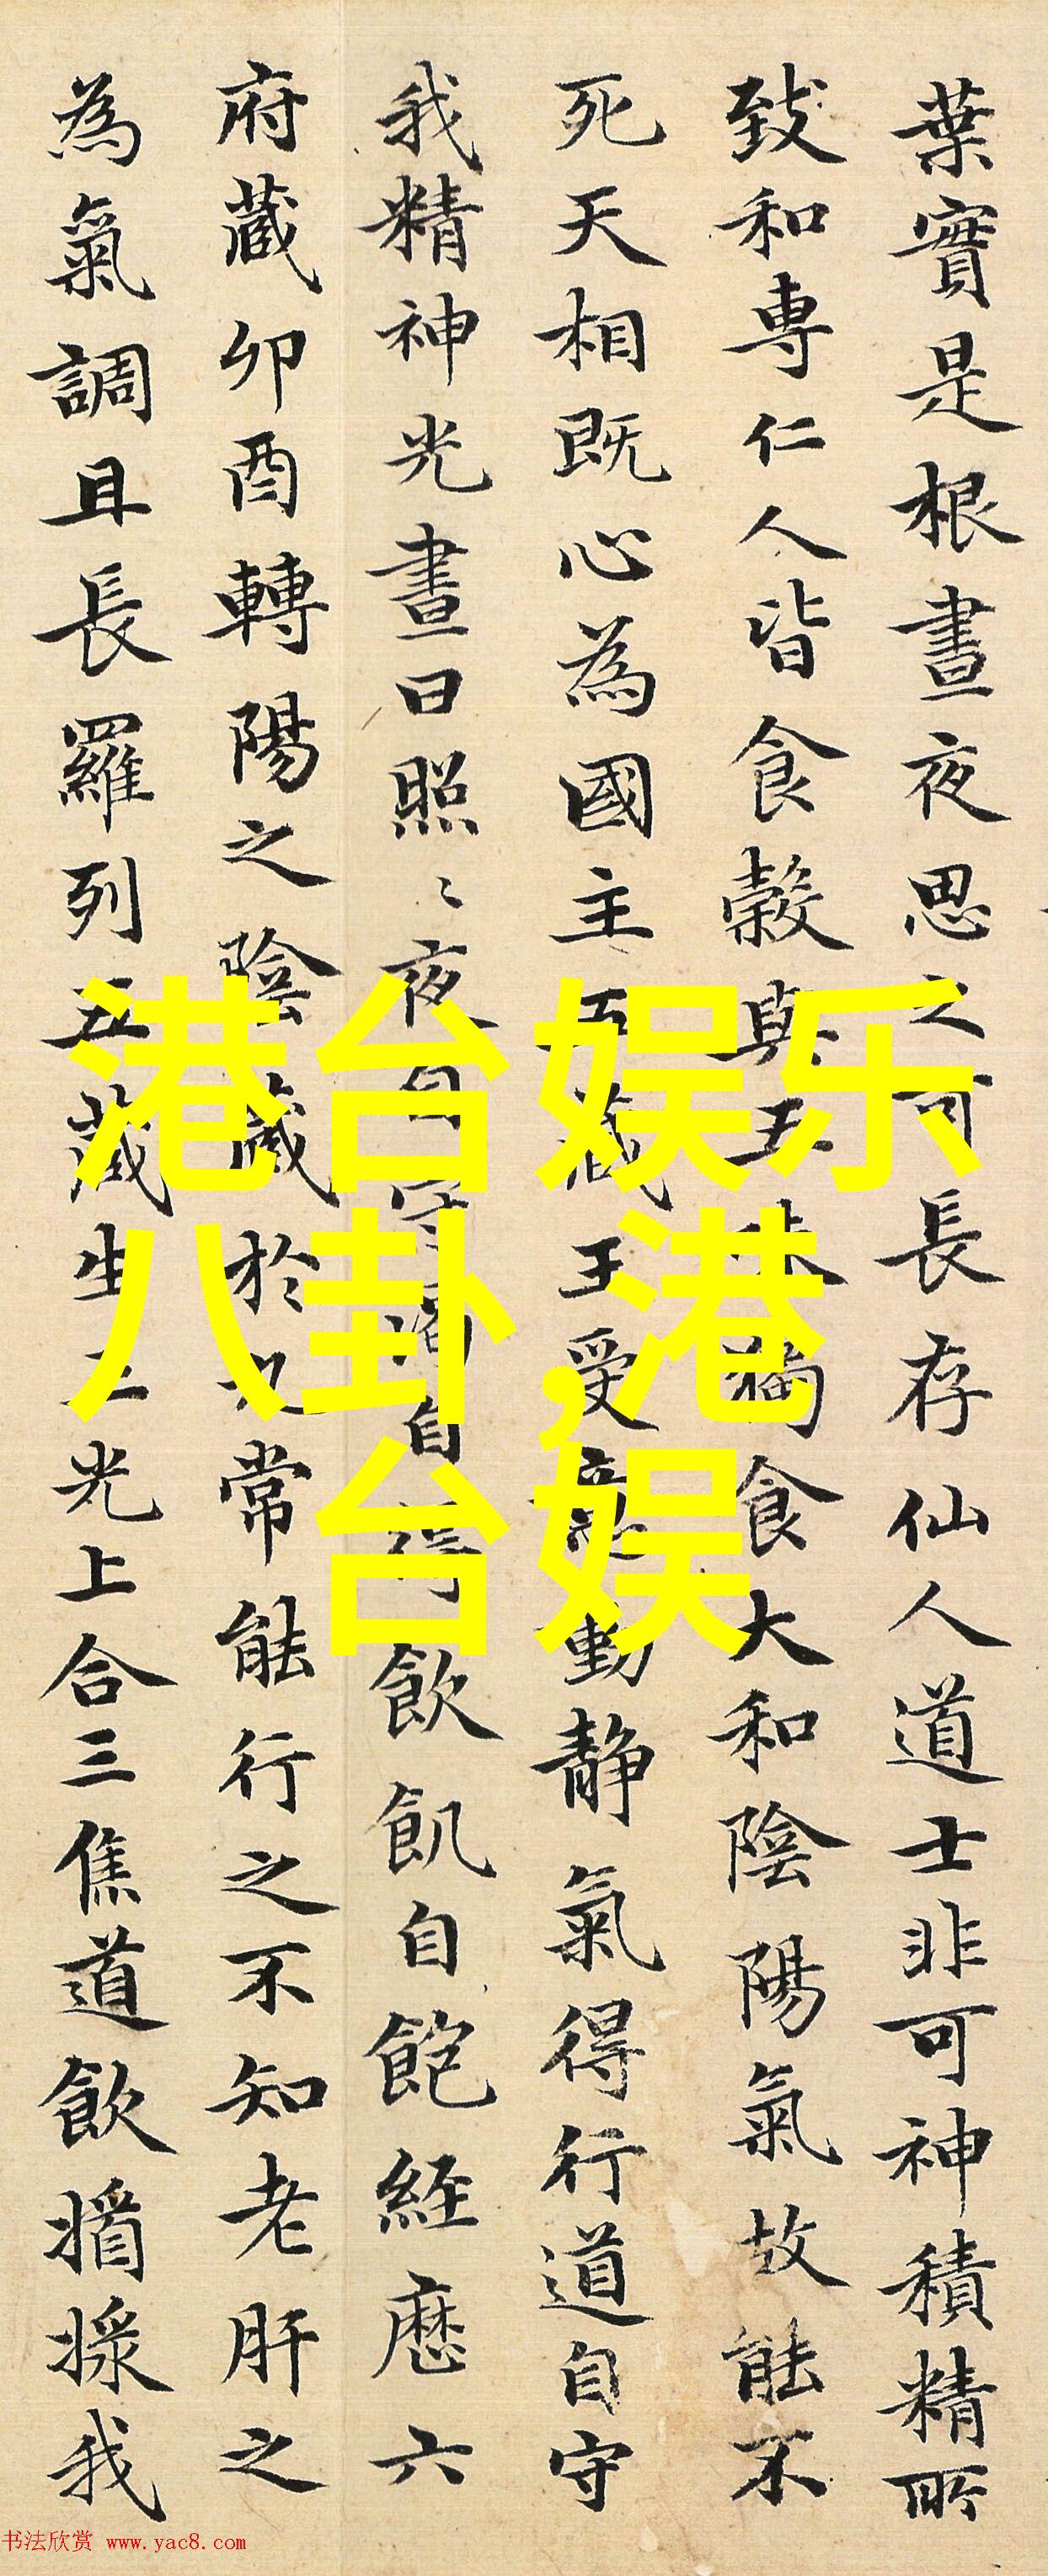 葉實是根晝夜思之可長存仙人道士非可神積精所
致和專仁人皆食穀與五味獨食大和陰陽氣故能不
死天相既心為國主五藏王受意動静氣得行道自守
我精神光晝日照〻夜自守渴自得飲飢自飽経歴六
府藏卯酉轉陽之陰藏於九常能行之不知老肝之
為氣調且長羅列五藏生三光上合三焦道飲我
港台娱乐
八卦,港
台娱
书法欣赏 www.yac8.com